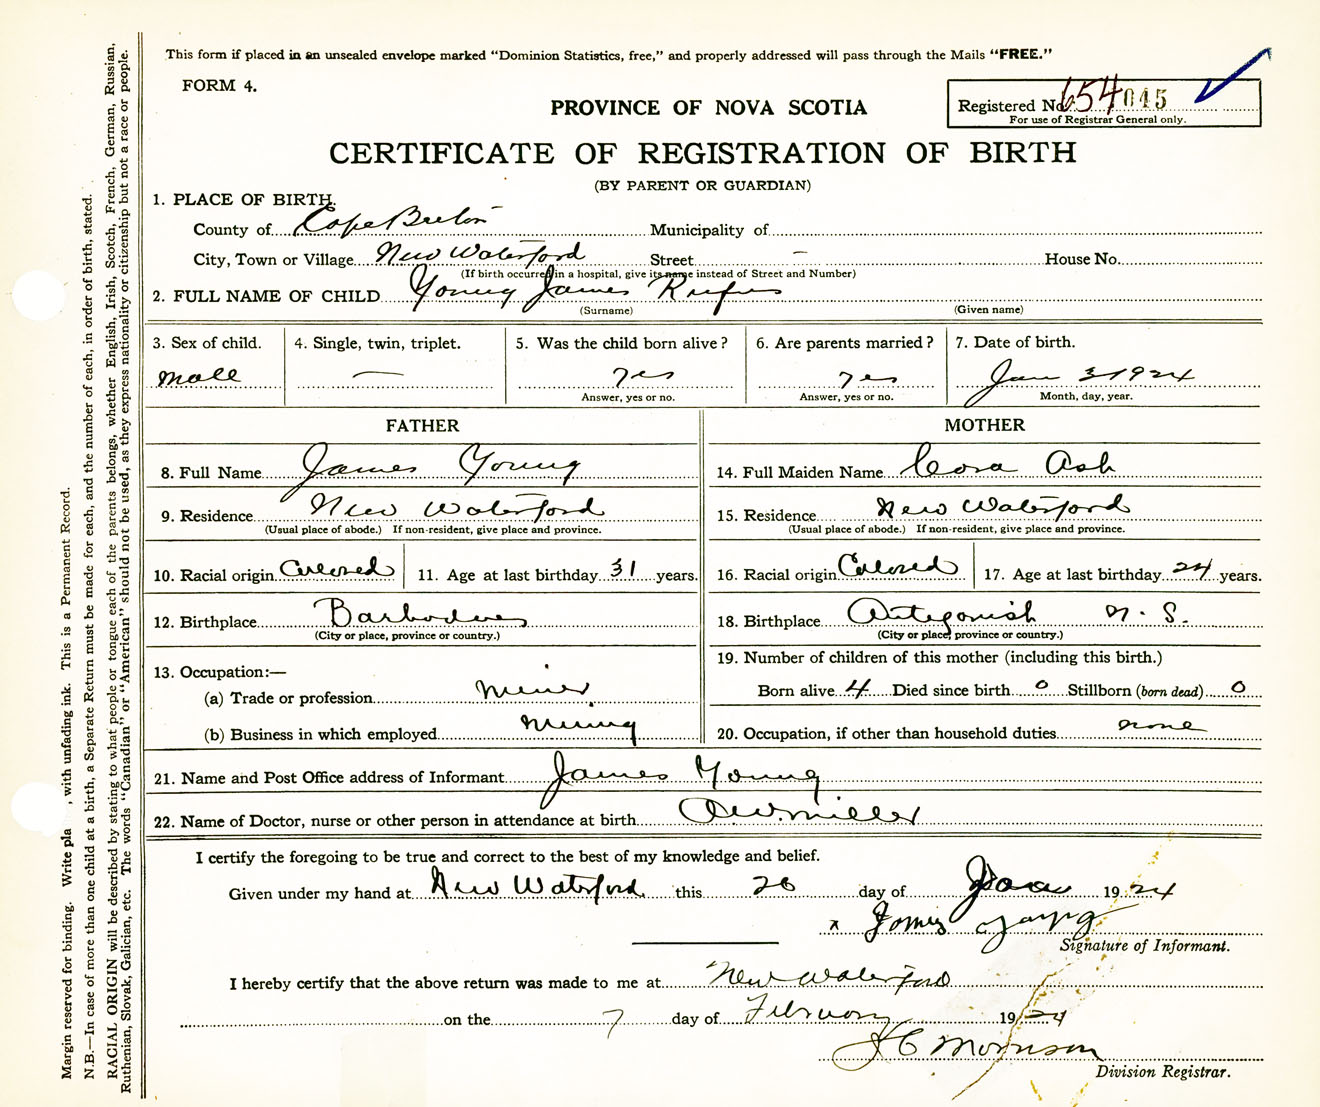 This form if placed in an unsealed envelope marked “Dominion Statistics, free,” and properly addressed will pass through the Mails “FREE.”
FORM 4.
Registered No. 654045
For use of Registrar General only.
PROVINCE OF NOVA SCOTIA
CERTIFICATE OF REGISTRATION OF BIRTH
(BY PARENT OR GUARDIAN)
1. PLACE OF BIRTH.
County of Cape Breton Municipality of
City, Town or Village New Waterford Street — House No.
(If birth occurred in a hospital, give its name instead of Street and Number)
2. FULL NAME OF CHILD Young James Rufus
(Surname) (Given name)
3. Sex of child. 4. Single, twin, triplet. 5. Was the child born alive? 6. Are parents married? 7. Date of birth.
male — yes yes Jan 3 1924
Answer, yes or no. Answer, yes or no. Month, day, year.
FATHER MOTHER
8. Full Name James Young 14. Full Maiden Name Cora Ash
9. Residence New Waterford 15. Residence New Waterford
(Usual place of abode.) If non-resident, give place and province. (Usual place of abode.) If non-resident, give place and province.
10. Racial origin Colored 11. Age at last birthday 31 years. 16. Racial origin Colored 17. Age at last birthday 24 years.
12. Birthplace Barbadoes 18. Birthplace Antegonish N. S.
(City or place, province or country.) (City or place, province or country.)
13. Occupation:— 19. Number of children of this mother (including this birth.)
(a) Trade or profession miner Born alive 4 Died since birth 0 Stillborn (born dead) 0
(b) Business in which employed mining 20. Occupation, if other than household duties none
21. Name and Post Office address of Informant James Young
22. Name of Doctor, nurse or other person in attendance at birth A.W. Miller
I certify the foregoing to be true and correct to the best of my knowledge and belief.
Given under my hand at New Waterford this 26 day of Jan 1924
x James Young
Signature of Informant.
I hereby certify that the above return was made to me at New Waterford
on the 7 day of February 1924
J C Morrison
Division Registrar.
Margin reserved for binding. Write pla , with unfading ink. This is a Permanent Record.
N.B.—In case of more than one child at a birth, a Separate Return must be made for each, and the number of each, in order of birth, stated.
RACIAL ORIGIN will be described by stating to what people or tongue each of the parents belongs, whether English, Irish, Scotch, French, German, Russian,
Ruthenian, Slovak, Galician, etc. The words “Canadian” or “American” should not be used, as they express nationality or citizenship but not a race or people.